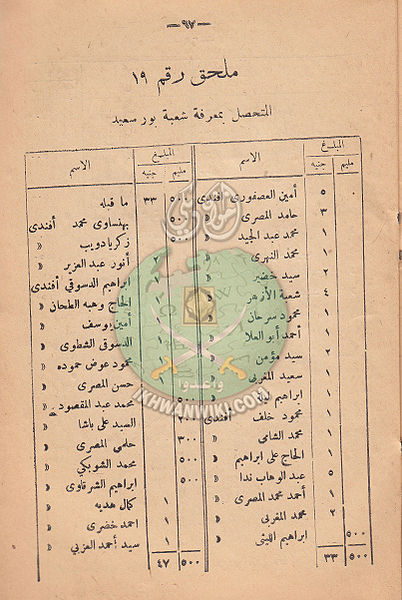 — ٩٧ —
ملحق رقم ١٩
المتحصل بمعرفة شعبة بور سعيد
الاسم المبلغ
جنيه مليم
أمين العصفورى أفندى ٥
حامد المصرى » ٣
محمد عبد المجيد » ١
محمد النهرى » ١
سيد خضير » ٢
شعبة الأزهر ٤
محمود سرحان ١
أحمد أبو العلا ١
سيد مؤمن ٢
سعيد المغربى ١
ابراهيم
محمود خلف أفندى
محمد الشامى » ١
الحاج على ابراهيم ١
عبد الوهاب ندا » ٥
أحمد محمد المصرى » ١
محمد المغربى » ٢
ابراهيم الليثى » ٥٠٠
٣٣ ٥٠٠
الاسم المبلغ
جنيه مليم
ما قبله ٣٣ ٥٠٠
بهنساوى محمد أفندى ٥٠٠
زكريا دويب » ٥٠٠
أنور عبد العزيز » ٢
ابراهيم الدسوقى أفندى ١
الحاج وهبه الطحان ١
أمين يوسف »
الدسوقى الشطوى »
محمود عوض حموده »
حسن المصرى » ١
محمد عبد المقصود »
السيد على باشا ٢٠٠
حلمى المصرى » ٣٠٠
محمد الشوبكي » ٥٠٠
ابراهيم الشرقاوى » ٥٠٠
كمال هديه » ١
احمد خضرى » ١
سيد أحمد العزبى » ١
٤٧ ٥٠٠
وأعدوا
IKHWANWIKI.COM